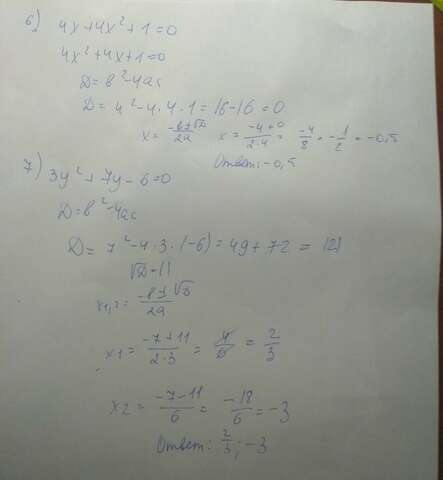 6) 4x+4x²+1=0
4x²+4x+1=0
D=в²-4ac
D=4²-4·4·1=16-16=0
x=(-в±√D)/2a x=(-4+0)/(2·4)=-4/8=-1/2=-0,5
Ответ:-0,5
7) 3y²+7y-6=0
D=в²-4ac
D=7²-4·3·(-6)=49+72=121
√D=11
x1,2=(-в±√D)/2a
x1=(-7+11)/(2·3)=4/6=2/3
x2=(-7-11)/6=-18/6=-3
Ответ: 2/3;-3